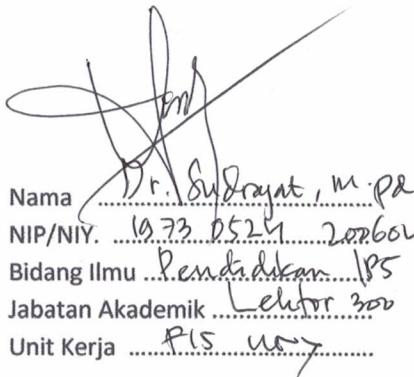 Nama Dr. Sudrajat, M.Pd
NIP/NIY. 19730524 200604
Bidang Ilmu Pendidikan IPS
Jabatan Akademik Lektor 300
Unit Kerja FIS UNY